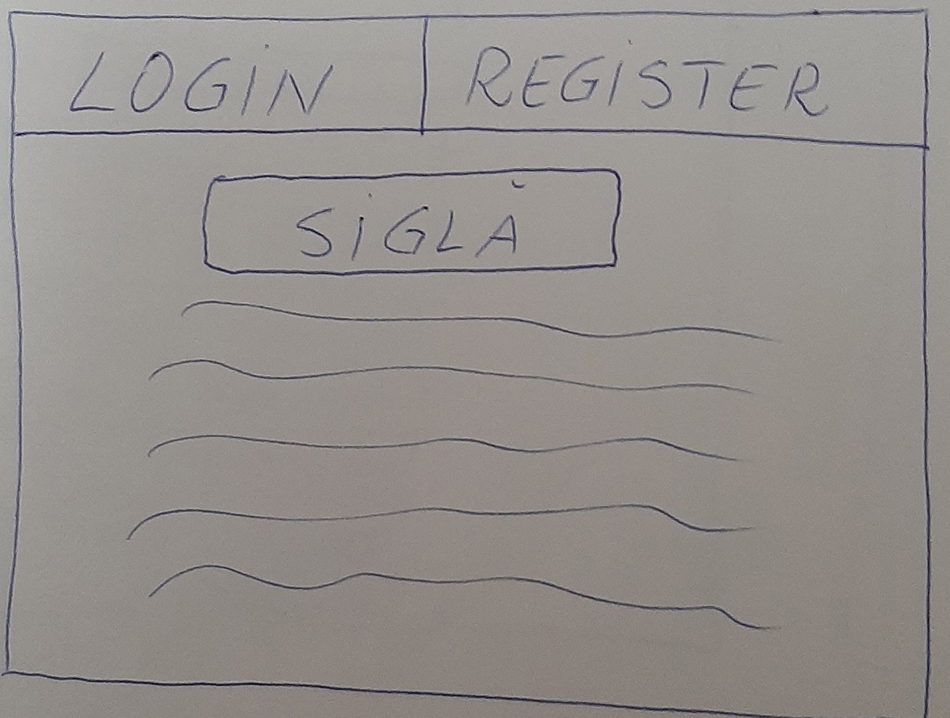 LOGIN REGISTER
SIGLĂ